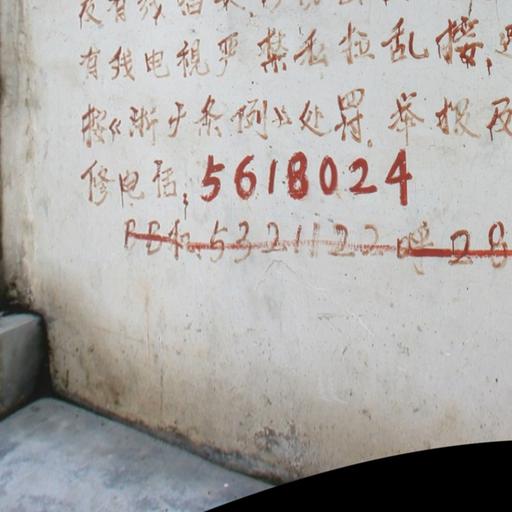 有线电视严禁私拉乱接,
按《浙少条例》处罚.举报及
修电话:5618024
BB机5321122呼28